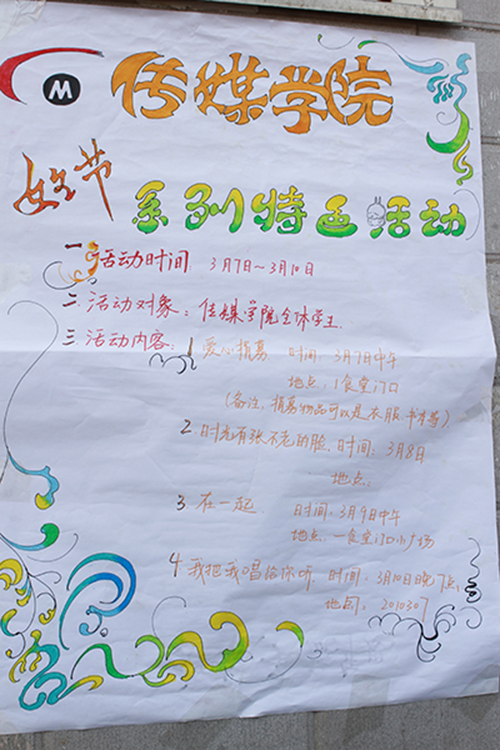 M
传媒学院
女生节
系列特色活动
一 活动时间: 3月7日~3月10日
二.活动对象:传媒学院全体学生.
三 活动内容: 1 爱心捐募. 时间:3月7日中午
地点:1食堂门口
(备注,捐募物品可以是衣服.书本等)
2.时光有张不老的脸.时间:3月8日
地点:
3 在一起. 时间:3月9日中午
地点:一食堂门口小广场
4 我把我唱给你听. 时间:3月10日晚7点.
地点:2010307